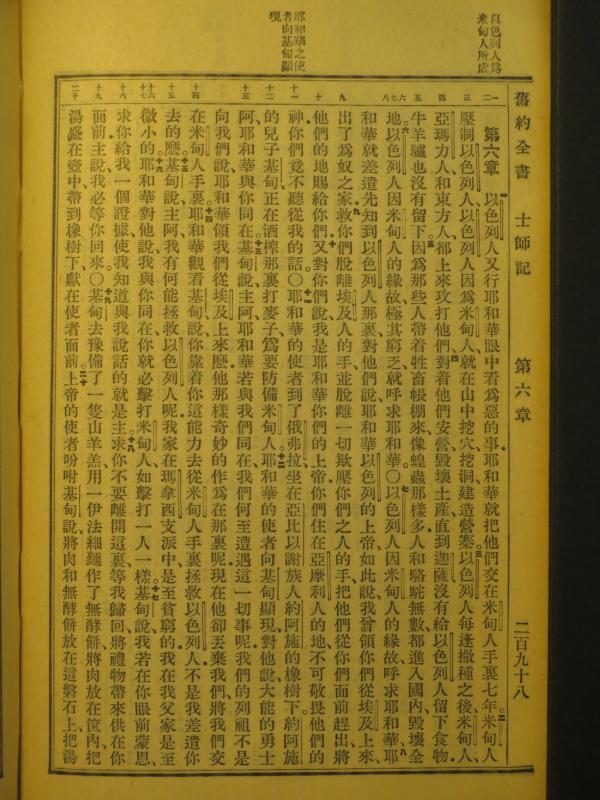 以色列人為
米甸人所虐
耶和華之使
者向基甸顯
現
舊約全書 士師記 第六章 二百九十八
一二 三 四 五 六七八 九 十 十一 十二 十三 十四 十五 十六十七 十八 十九 二十
第六章 以色列人又行耶和華眼中看為惡的事、耶和華就把他們交在米甸人手裏七年、米甸人
壓制以色列人、以色列人因為米甸人、就在山中挖穴挖洞建造營寨、以色列人每逢撒種之後、米甸人、
亞瑪力人、和東方人、都上來攻打他們、對着他們安營、毀壞土產、直到迦薩、沒有給以色列人留下食物、
牛羊驢也沒有留下、因為那些人帶着牲畜帳棚來、像蝗蟲那樣多、人和駱駝無數、都進入國內、毀壞全
地、以色列人因米甸人的緣故、極其窮乏、就呼求耶和華○以色列人因米甸人的緣故、呼求耶和華、耶
和華就差遣先知到以色列人那裏、對他們說、耶和華以色列的上帝如此說、我曾領你們從埃及上來、
出了為奴之家、救你們脫離埃及人的手、並脫離一切欺壓你們之人的手、把他們從你們面前趕出、將
他們的地賜給你們、又對你們說、我是耶和華你們的上帝、你們住在亞摩利人的地、不可敬畏他們的
神、你們竟不聽從我的話○耶和華的使者到了俄弗拉、坐在亞比以謝族人約阿施的橡樹下、約阿施
的兒子基甸正在酒榨那裏打麥子、為要防備米甸人、耶和華的使者向基甸顯現、對他說、大能的勇士
阿、耶和華與你同在、基甸說、主阿、耶和華若與我們同在、我們何至遭遇這一切事呢、我們的列祖不是
向我們說、耶和華領我們從埃及上來麽、他那樣奇妙的作為在那裏呢、現在他卻丟棄我們、將我們交
在米甸人手裏、耶和華觀看基甸說、你靠着你這能力去從米甸人手裏拯救以色列人、不是我差遣你
去的麽、基甸說、主阿、我有何能拯救以色列人呢、我家在瑪拿西支派中、是至貧窮的、我在我父家是至
微小的、耶和華對他說、我與你同在、你就必擊打米甸人、如擊打一人一樣、基甸說、我若在你眼前蒙恩、
求你給我一個證據、使我知道與我說話的就是主、求你不要離開這裏、等我歸回將禮物帶來供在你
面前、主說、我必等你回來○基甸去豫備了一隻山羊羔、用一伊法細麵作了無酵餅、將肉放在筐內、把
湯盛在壺中、帶到橡樹下、獻在使者面前、上帝的使者吩咐基甸說、將肉和無酵餅放在這磐石上、把湯